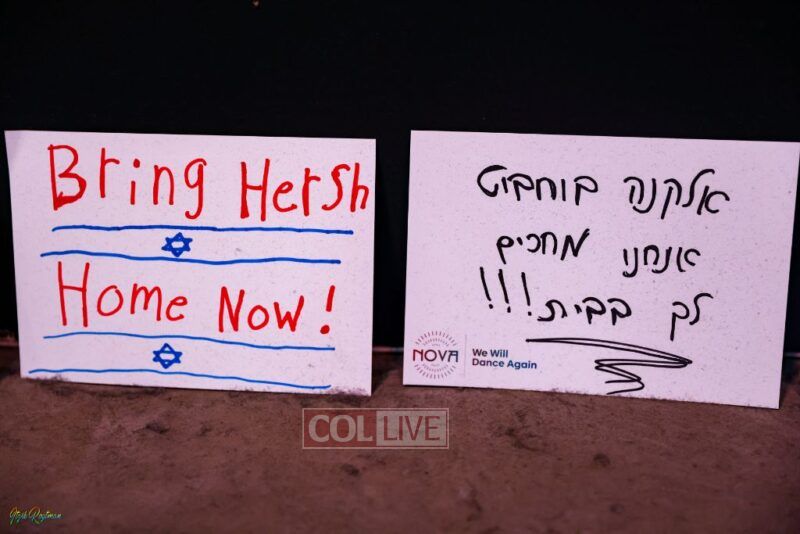 Bring Hersh
Home Now!
אלקנה בוחבוט
אנחנו מחכים
לך בבית!!!
NOVA
We Will
Dance Again
COL LIVE